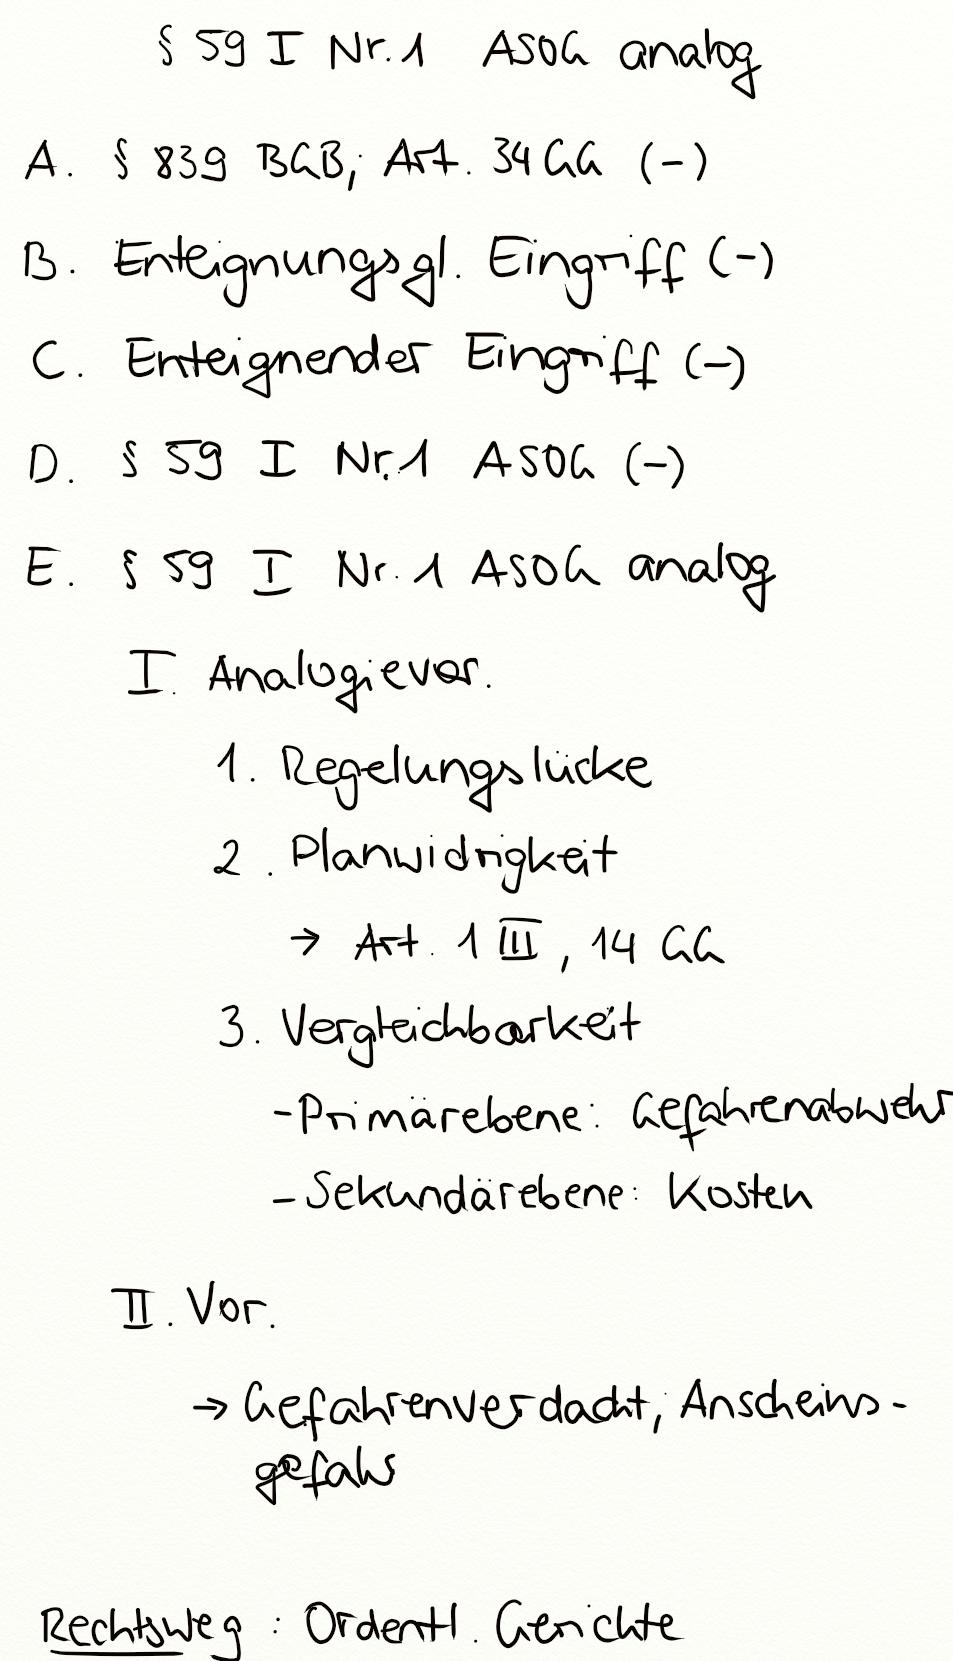 § 59 I Nr. 1 ASOG analog
A. § 839 BGB; Art. 34 GG (-)
B. Enteignungsgl. Eingriff (-)
C. Enteignender Eingriff (-)
D. § 59 I Nr. 1 ASOG (-)
E. § 59 I Nr. 1 ASOG analog
I. Analogievor.
1. Regelungslücke
2. Planwidrigkeit
→ Art. 1 III, 14 GG
3. Vergleichbarkeit
- Primärebene: Gefahrenabwehr
- Sekundärebene: Kosten
II. Vor.
→ Gefahrenverdacht; Anscheins-
gefahr
Rechtsweg: Ordentl. Gerichte